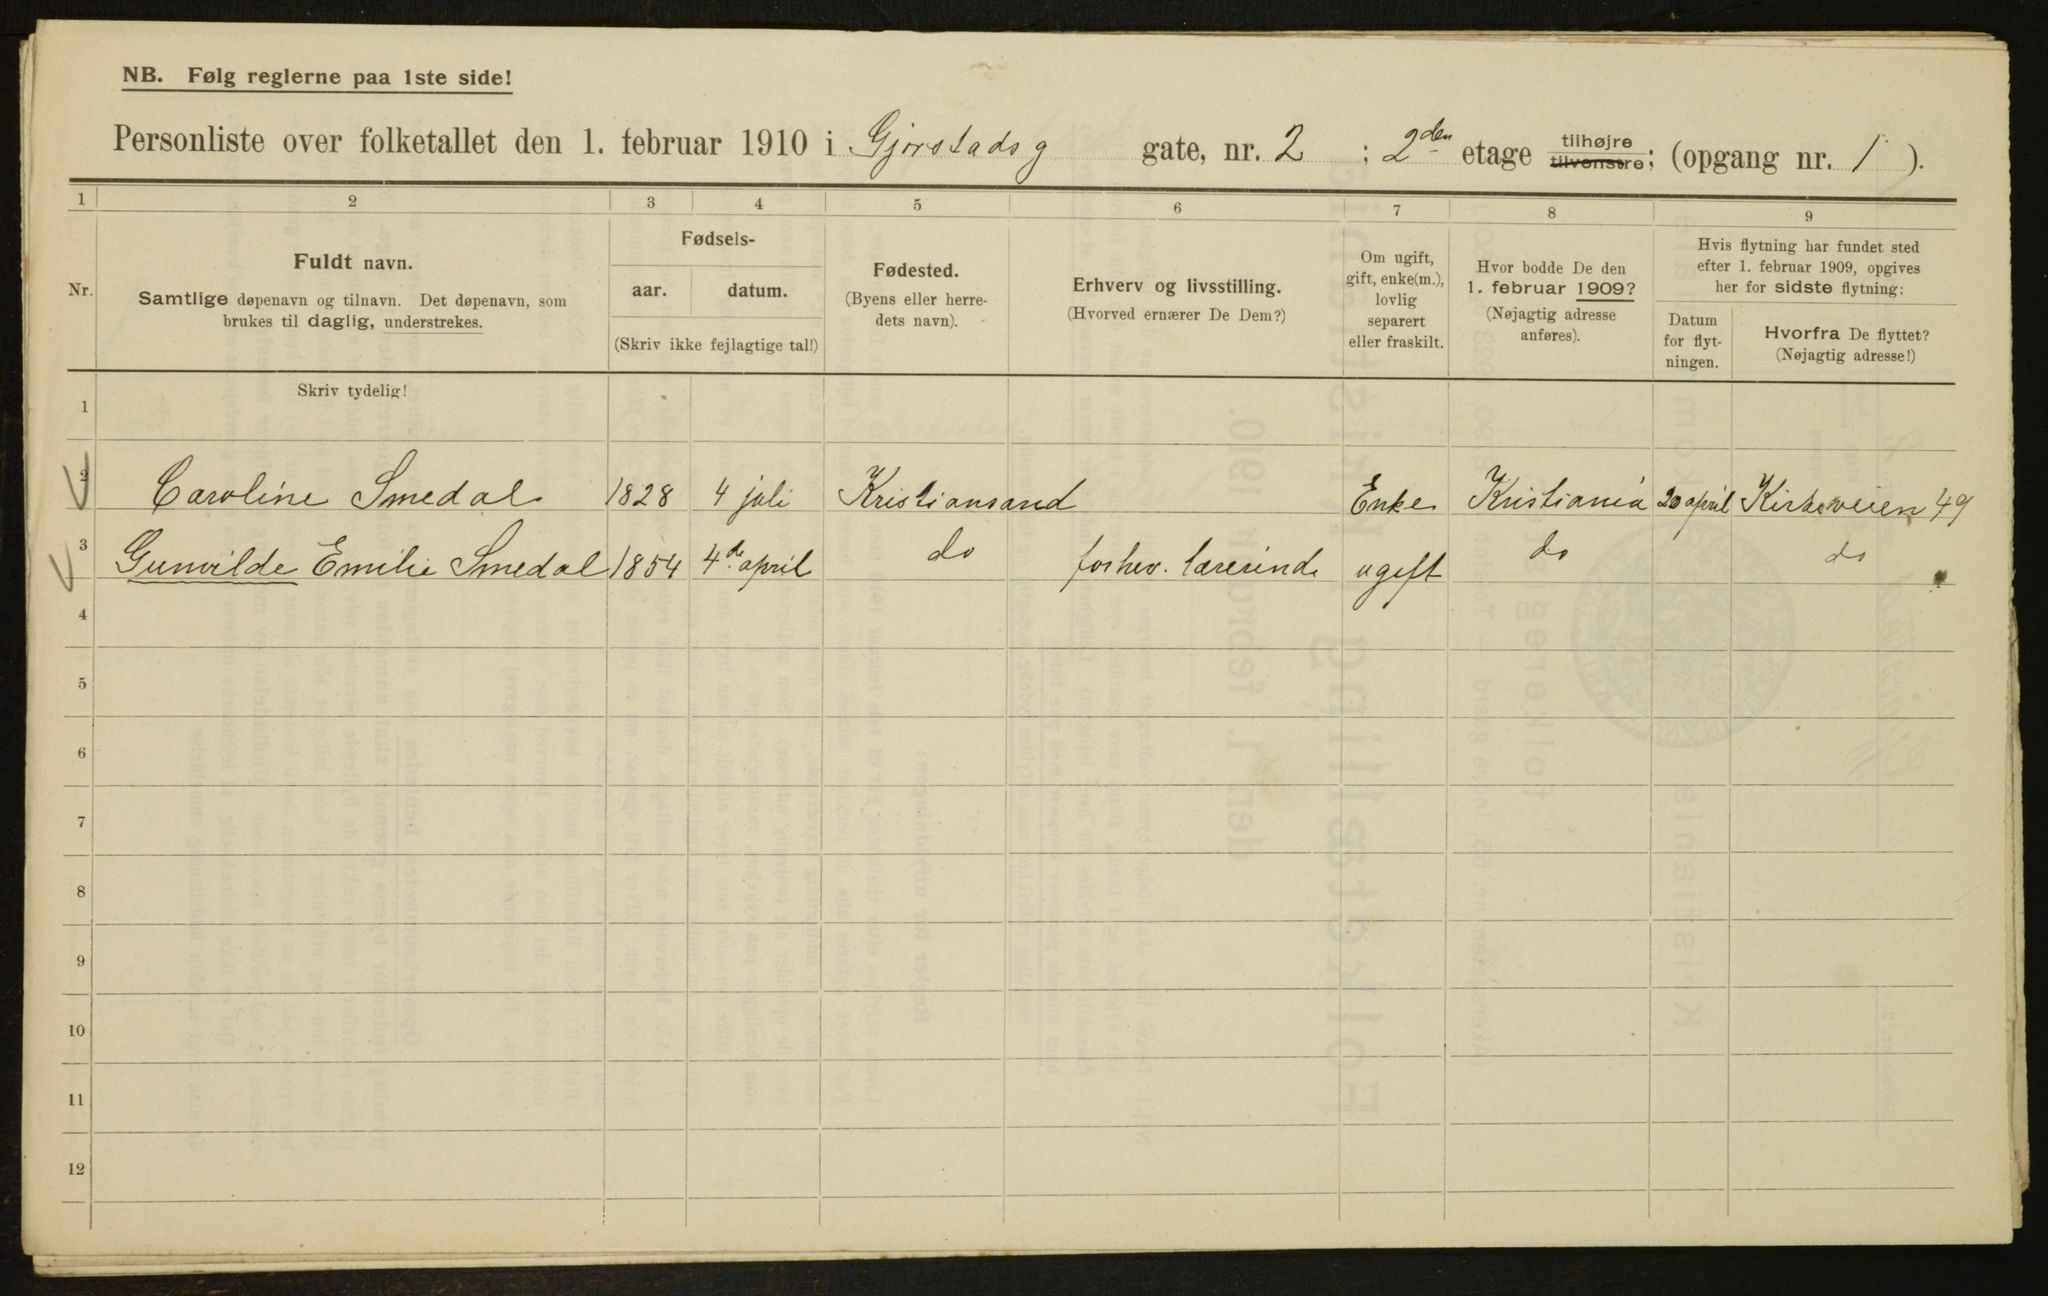 NB. Følg reglerne paa 1ste side!
Personliste over folketallet den 1. februar 1910 i Gjørstads g gate, nr. 2 ; 2den etage tilhøjre tilvenstre; (opgang nr. 1 ).
1 2 3 4 5 6 7 8 9
Nr.
Fuldt navn.
Samtlige døpenavn og tilnavn. Det døpenavn, som
brukes til daglig, understrekes.
Skriv tydelig!
Fødsels-
aar. datum.
(Skriv ikke fejlagtige tal!)
Fødested.
(Byens eller herre-
dets navn).
Erhverv og livsstilling.
(Hvorved ernærer De Dem?)
Om ugift,
gift, enke(m.),
lovlig
separert
eller fraskilt.
Hvor bodde De den
1. februar 1909?
(Nøjagtig adresse
anføres).
Hvis flytning har fundet sted
efter 1. februar 1909, opgives
her for sidste flytning:
Datum
for flyt-
ningen.
Hvorfra De flyttet?
(Nøjagtig adresse!)
1
2 Caroline Smedal 1828 4 juli Kristiansand Enke Kristiania 20 april Kirkeveien 49
3 Gunvilde Emilie Smedal 1854 4de april do forhev. lærerinde ugift do do
4
5
6
7
8
9
10
11
12